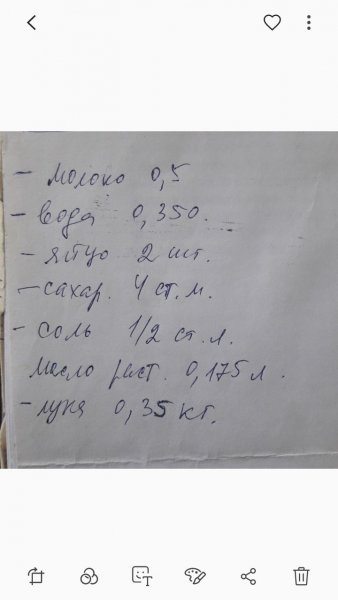 - молоко 0,5
- вода 0,350.
- яйцо 2 шт.
- сахар. 4 ст. л.
- соль 1/2 ст. л.
масло раст. 0,175 л.
- мука 0,35 кг.
T